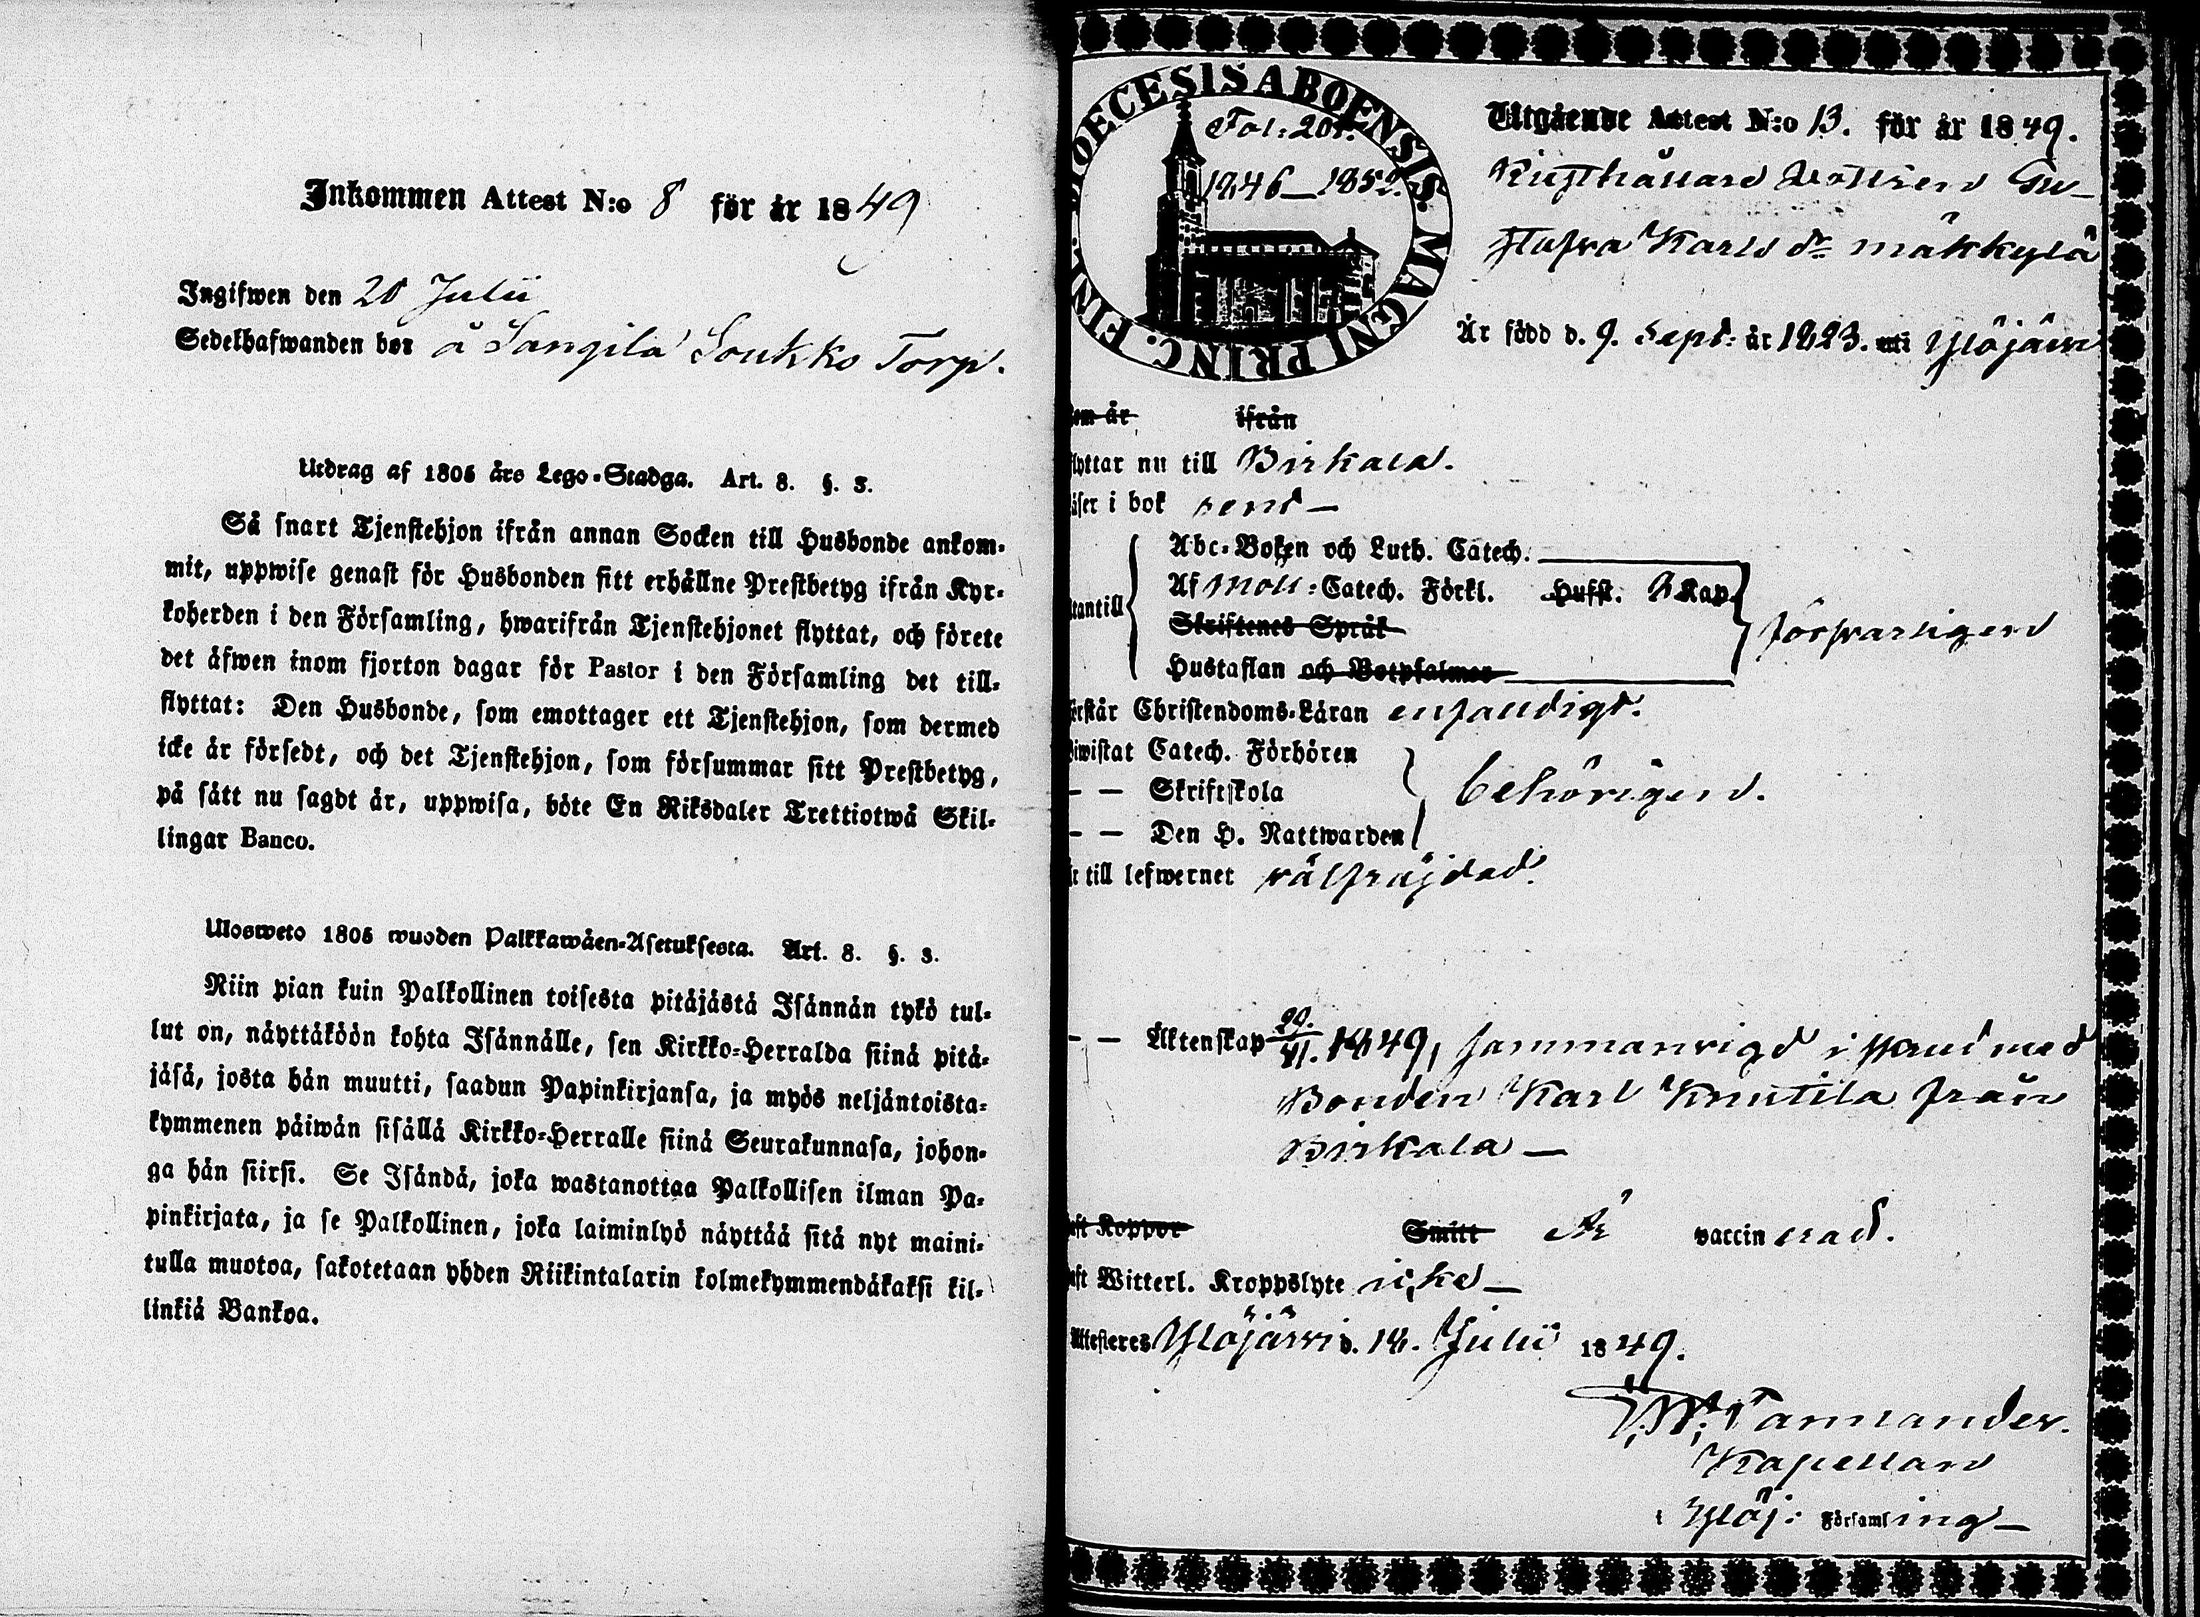 Inkommen Attest N:o 8 för år 1849
Ingifwen den 20 Julii
Sedelhafwanden bor å Sangila Soukko Torp.
Utdrag af 1805 års Lego-Stadga. Art. 8. §. 3.
Så snart Tjenstehjon ifrån annan Socken till Husbonde ankom-
mit, uppwise genast för Husbonden sitt erhållne Prestbetyg ifrån Kyr-
koherden i den Församling, hwarifrån Tjenstehjonet flyttat, och förete
det äfwen inom fjorton dagar för Pastor i den Församling det till-
flyttat: Den Husbonde, som emottager ett Tjenstehjon, som dermed
icke är försedt, och det Tjenstehjon, som försummar sitt Prestbetyg,
på sätt nu sagdt är, uppwisa, böte En Riksdaler Trettiotwå Skil-
lingar Banco.
Ulosweto 1805 wuoden Palkkawäen-Asetuksesta. Art. 8. §. 3.
Niin pian kuin Palkollinen toisesta pitäjästä Isännän tykö tul-
lut on, näyttäköön kohta Isännälle, sen Kirkko-Herralda siinä pitä-
jäsä, josta hän muutti, saadun Papinkirjansa, ja myös neljäntoista-
kymmenen päiwän sisällä Kirkko-Herralle siinä Seurakunnasa, johon-
ga hän siirsi. Se Isändä, joka wastanottaa Palkollisen ilman Pa-
pinkirjata, ja se Palkollinen, joka laiminlyö näyttää sitä nyt maini-
tulla muotoa, sakotetaan yhden Riikintalarin kolmekymmendäkaksi kil-
linkiä Bankoa.
DIOECESIS ABOENSIS. MAGNI PRINC. FINL.
Fol: 201.
1846–1852.
Utgående Attest N:o 13. för år 1849.
Rusthållare Dottren Gu-
stafva Karls dr Mäkkylä
Är född d. 9. Sept: år 1823. uti Ylöjärvi
som är ifrån
flyttar nu till Birkala.
läser i bok rent –
utantill
Abc-Boken och Luth. Catech.
Af Moll: Catech. Förkl. Husst. 2 Kap.
Skriftenes Språk
Hustaflan och Botpsalmer
försvarligen
förstår Christendoms-Läran enfaldigt.
biwistat Catech. Förhören
– – Skriftskola
– – Den H. Nattwarden
behörigen.
är till lefwernet välfräjdad.
– – Äktenskap 20./VI. 1849, sammanvigd i stånd med
Bonden Karl Knutila från
Birkala –
haft Koppor Smitt Är vaccinerad.
haft Witterl. Kroppslyte icke –
Attesteres Ylöjärvi d. 18. Julii 1849.
Tammander.
Kapellan
i Ylöj: Församling –